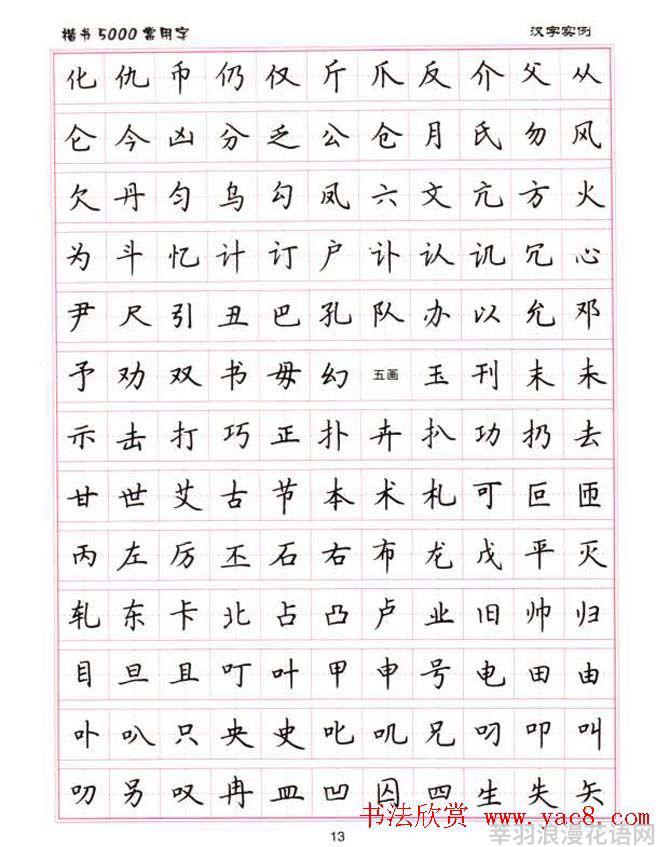 楷书5000常用字 汉字实例
化 仇 币 仍 仅 斤 爪 反 介 父 从
仑 今 凶 分 乏 公 仓 月 氏 勿 风
欠 丹 匀 乌 勾 凤 六 文 亢 方 火
为 斗 忆 计 订 户 讣 认 讥 冗 心
尹 尺 引 丑 巴 孔 队 办 以 允 邓
予 劝 双 书 毋 幻 五画 玉 刊 末 未
示 击 打 巧 正 扑 卉 扒 功 扔 去
甘 世 艾 古 节 本 术 札 可 叵 匝
丙 左 厉 丕 石 右 布 龙 戊 平 灭
轧 东 卡 北 占 凸 卢 业 旧 帅 归
目 旦 且 叮 叶 甲 申 号 电 田 由
卟 叭 只 央 史 叱 叽 兄 叼 叩 叫
叨 另 叹 冉 皿 凹 囚 四 生 失 矢
书法欣赏 www.yac8.com
莘羽浪漫花语网
13